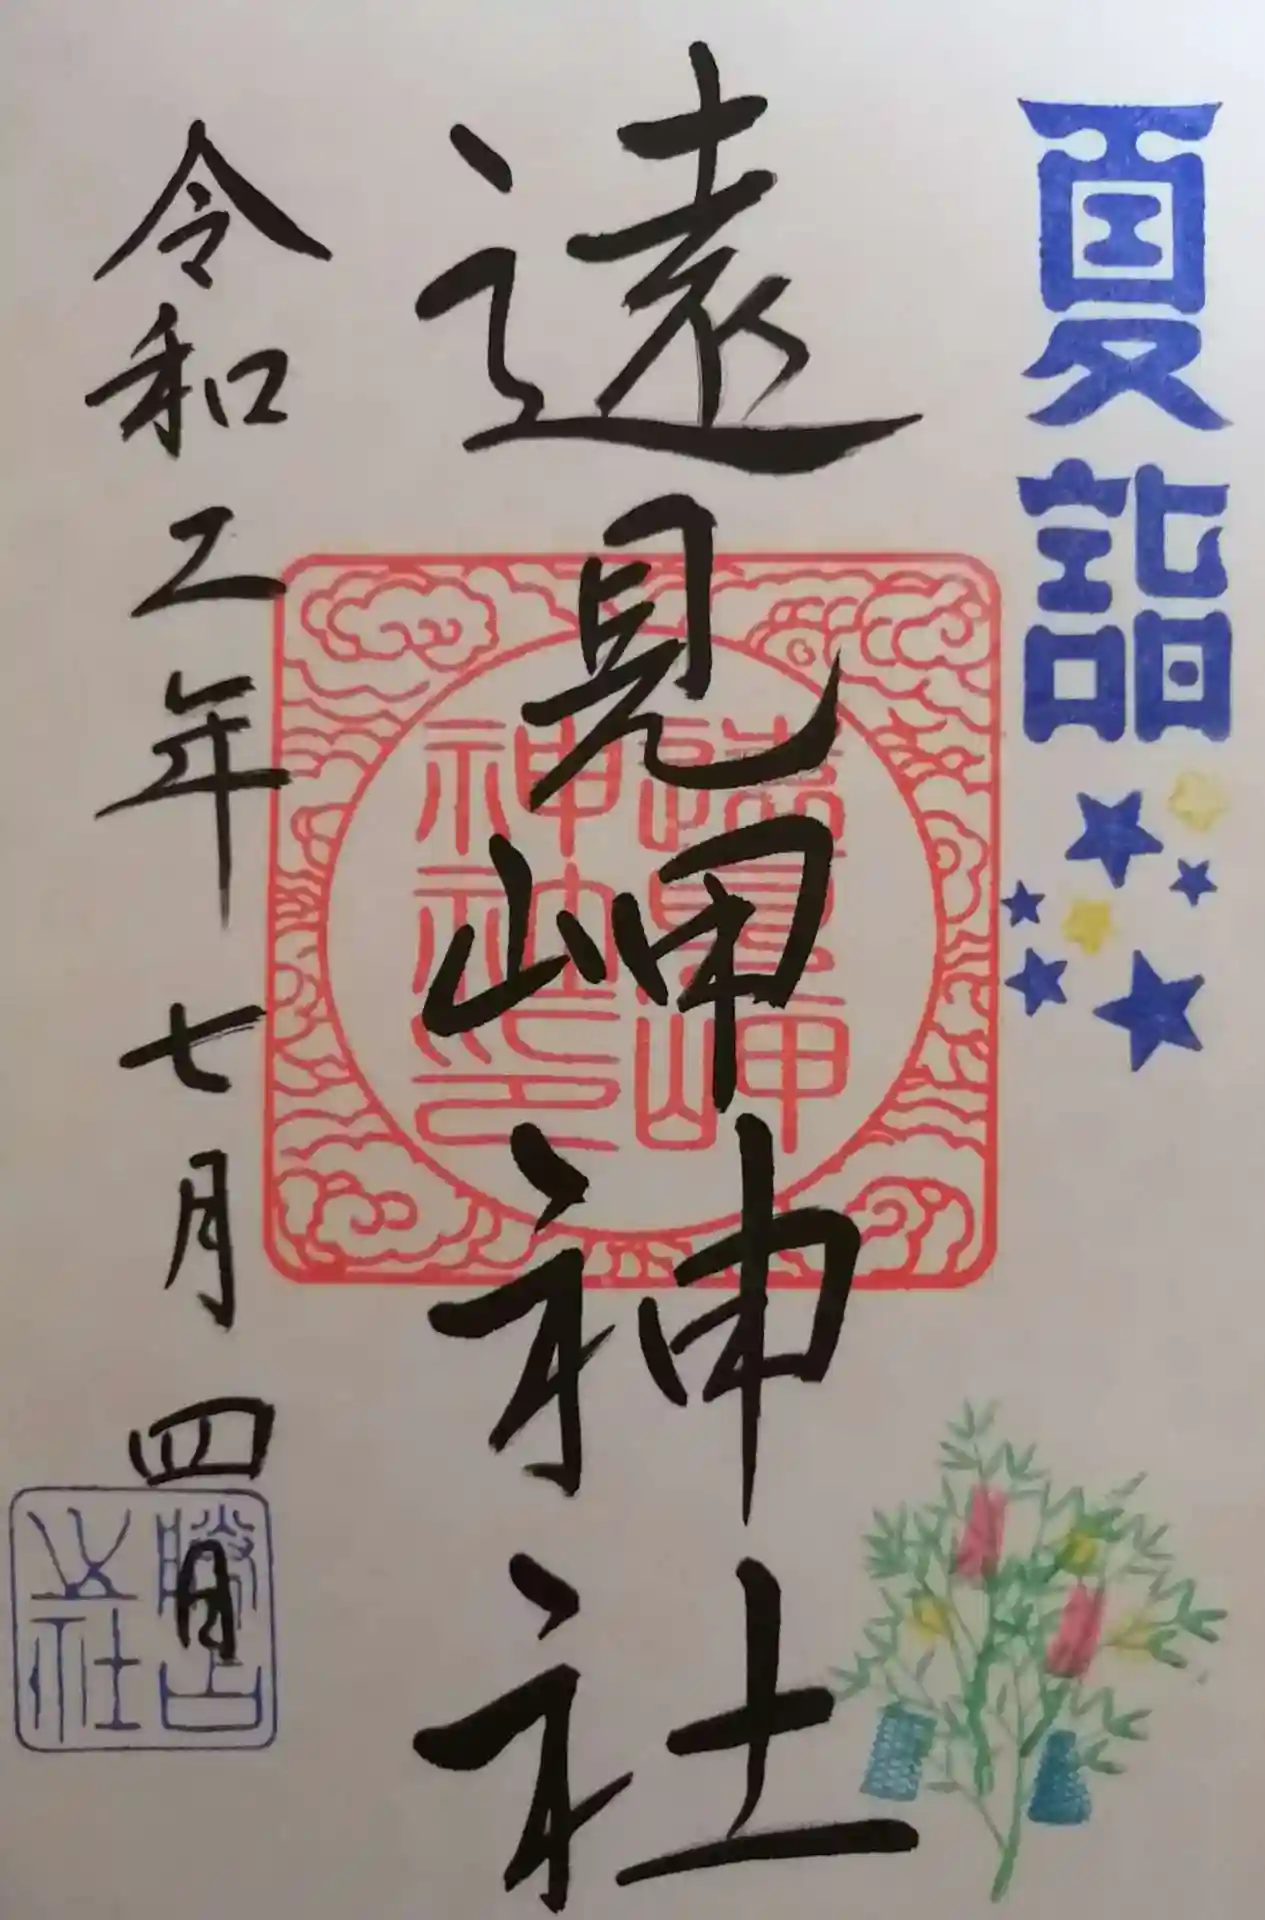 夏詣
遠見岬神社
遠見岬
神社印
令和二年七月四日